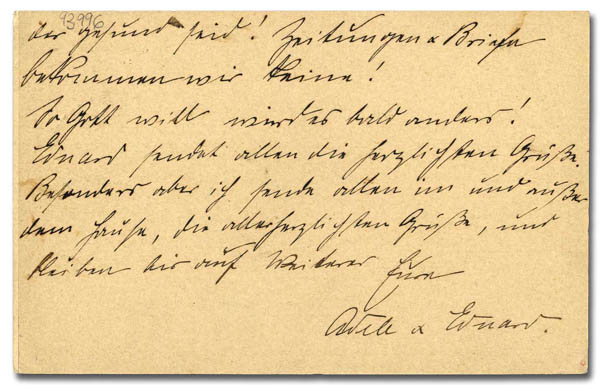 93996
der gesund seid! Zeitungen & Briefe
bekommen wir keine!
So Gott will wird es bald anders!
Eduard sendet allen die herzlichsten Grüße.
Besonders aber ich sende allen im und außer
dem Hause, die allerherzlichsten Grüße, und
bleiben bis auf Weiteres Eure
Adele & Eduard.